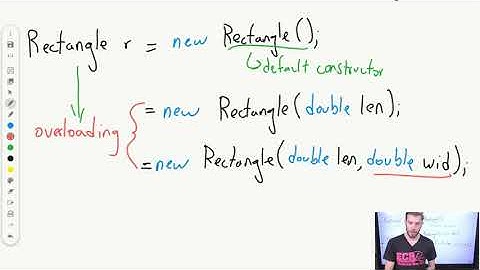 Rectangle r = new Rectangle();
default constructor
= new Rectangle(double len);
overloading
= new Rectangle(double len, double wid);